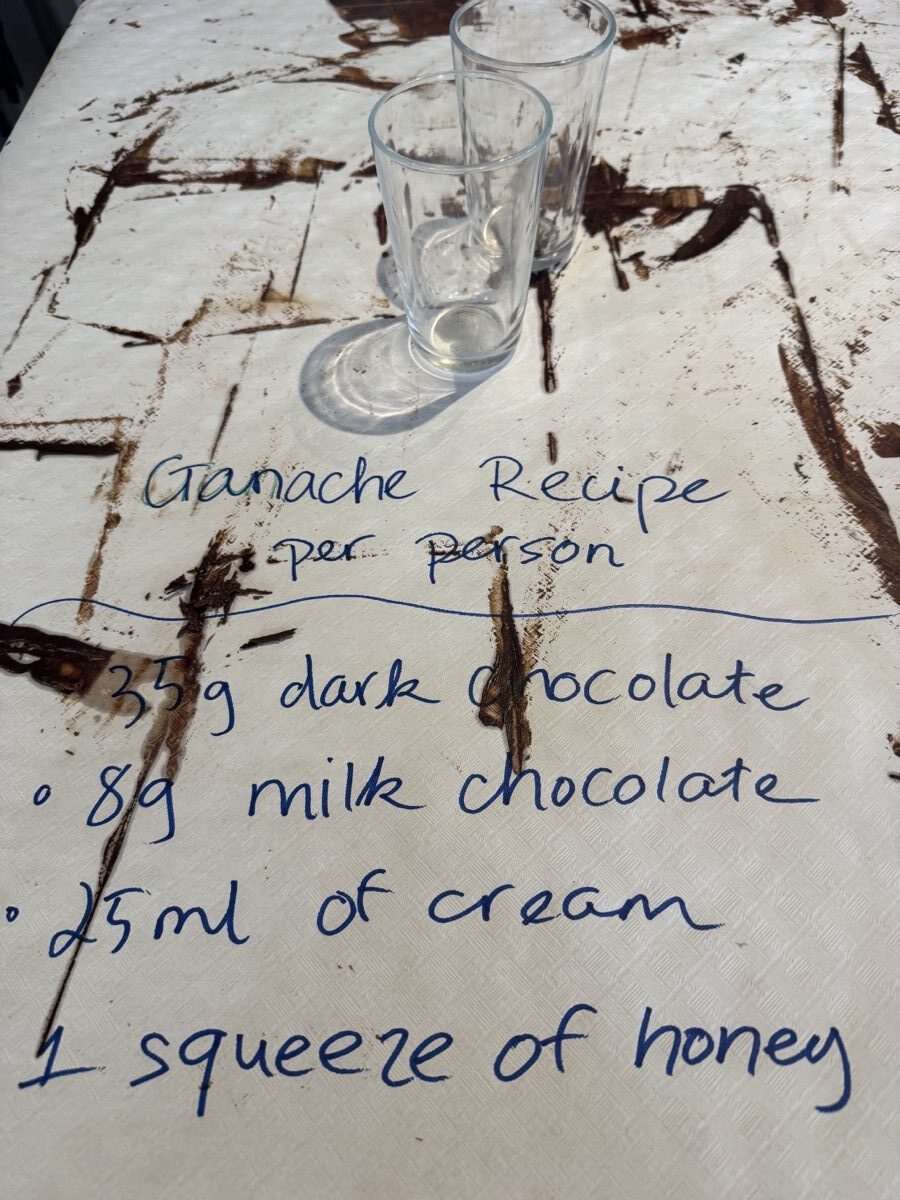 Ganache Recipe
per person
35g dark chocolate
• 8g milk chocolate
• 25ml of cream
1 squeeze of honey